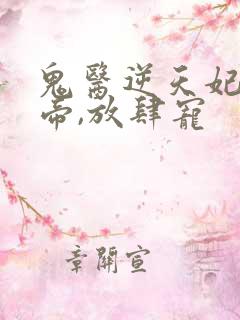 鬼醫逆天妃
帝,放肆寵
章開宣